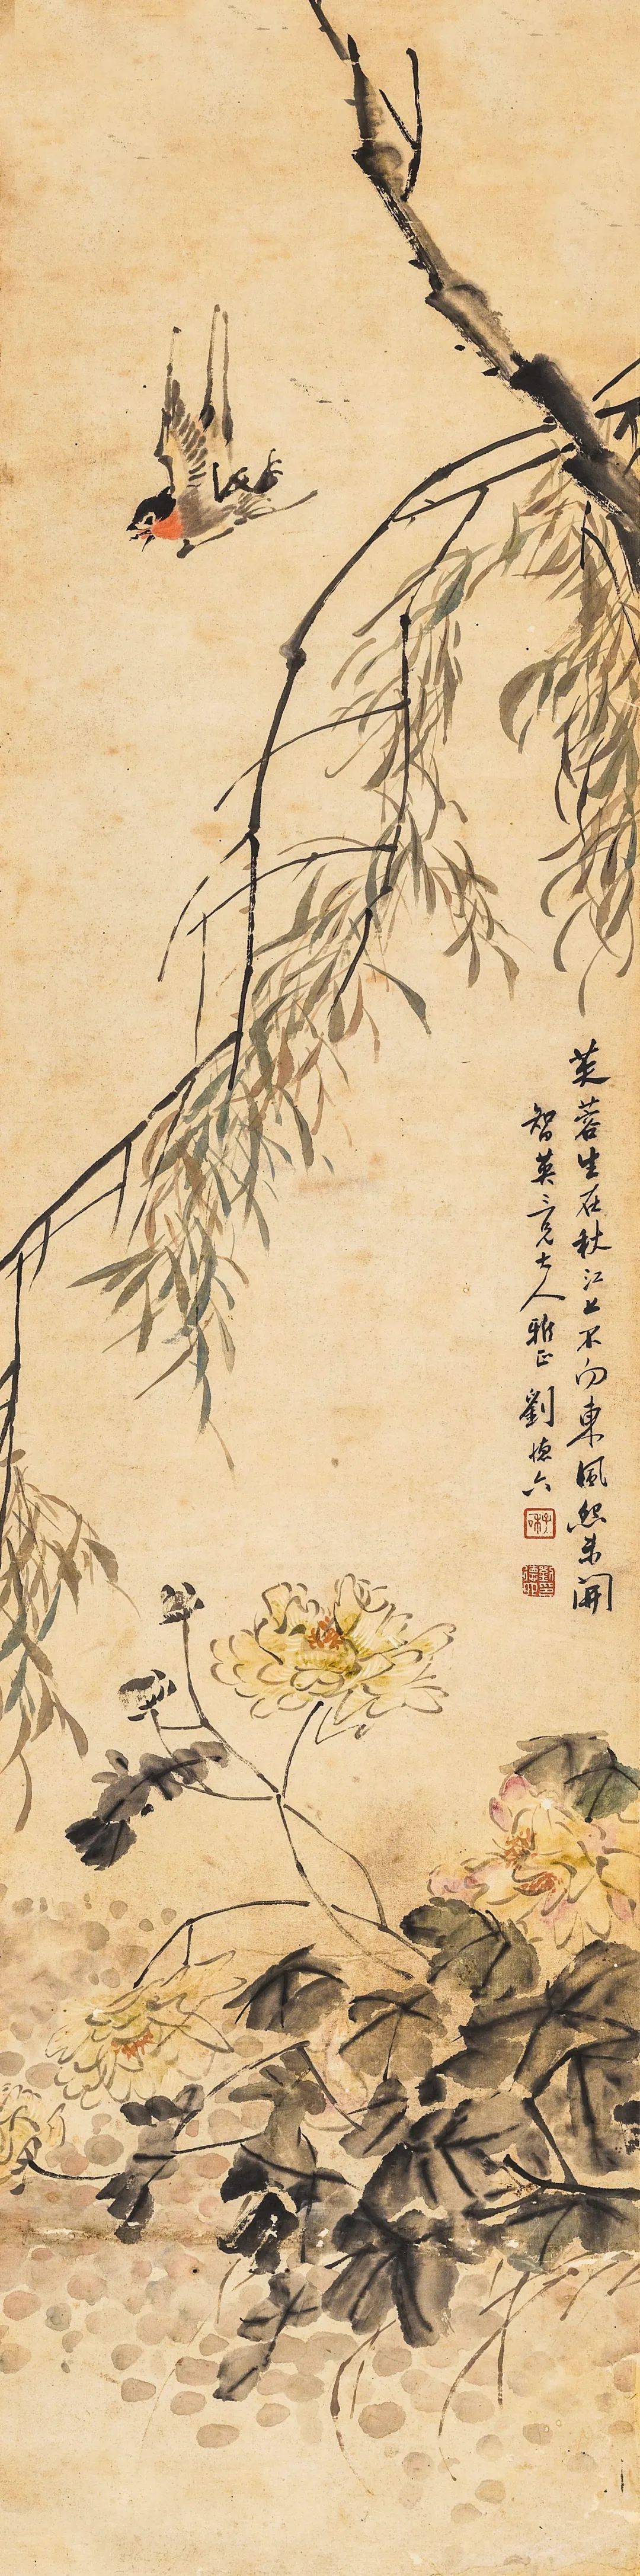 芙蓉生在秋江上不向東風怨未開
智英三兄大人雅正劉德六
子和
劉印德六